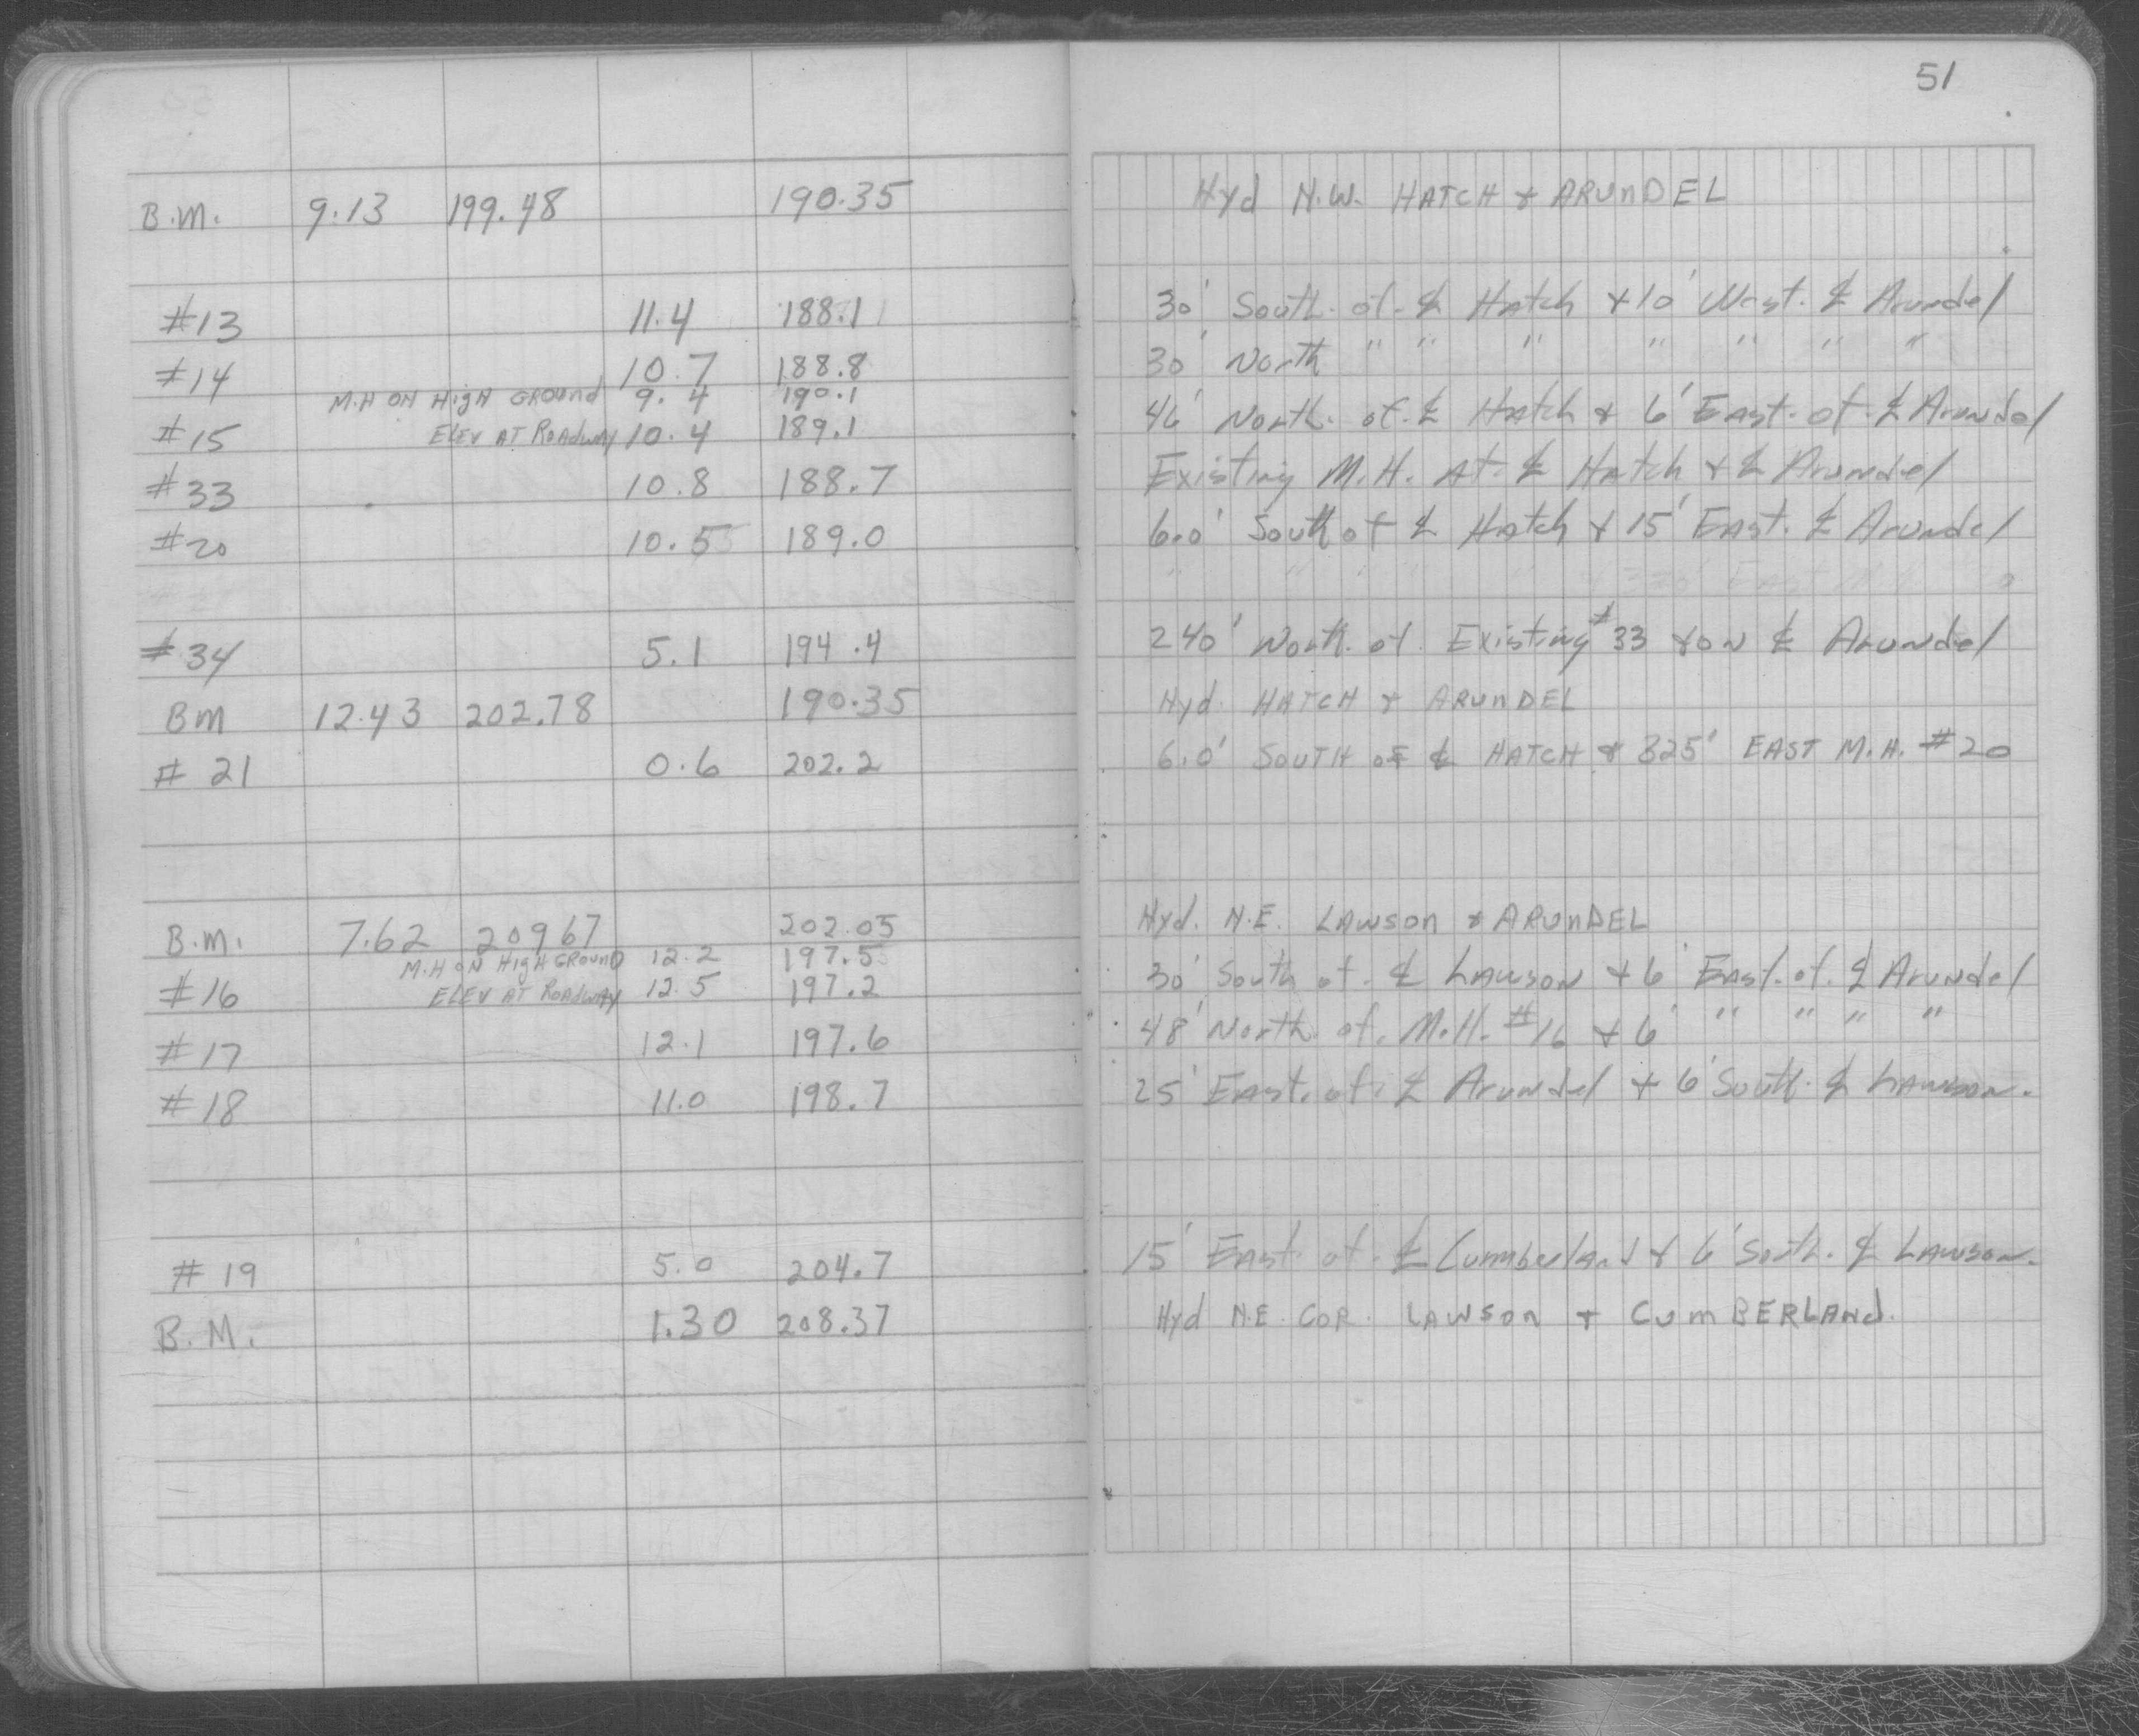 51
B.M. 9.13 199.48 190.35 Hyd N.W. HATCH & ARUNDEL
#13 11.4 188.1 30' South. of. ℄ Hatch & 10' West. ℄ Arundel
#14 10.7 188.8 30' North " " " " " " "
M.H ON HigH GROUnd 9.4 190.1
#15 ELEV AT ROAdwAy 10.4 189.1 46' North. of. ℄ Hatch & 6' East. of. ℄ Arundel
#33 10.8 188.7 Existing M.H. At. ℄ Hatch & ℄ Arundel
#20 10.5 189.0 6.0' South of ℄ Hatch & 15' East. ℄ Arundel
#34 5.1 194.4 240' North. of. Existing #33 & on ℄ Arundel
BM 12.43 202.78 190.35 Hyd. HATCH & ARUNDEL
# 21 0.6 202.2 6.0' SOUTH OF ℄ HATCH & 325' EAST M.H. #20
B.M. 7.62 209.67 202.05 Hyd. N.E. LAWSON & ARUNDEL
M.H ON HigH GROUND 12.2 197.5
#16 ELEV AT ROADWAY 12.5 197.2 30' South of. ℄ Lawson & 6' East. of. ℄ Arundel
#17 12.1 197.6 48' North. of. M.H. #16 & 6' " " " "
#18 11.0 198.7 25' East. of. ℄ Arundel & 6' South. ℄ Lawson.
# 19 5.0 204.7 15' East. of. ℄ Cumberland & 6' South. ℄ Lawson.
B.M. 1.30 208.37 Hyd N.E. COR. LAWSON & CUMBERLAND.